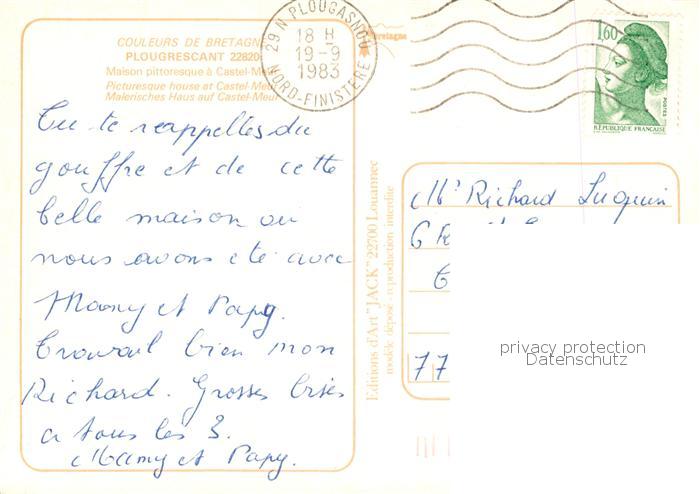 COULEURS DE BRETAGNE
PLOUGRESCANT 22820
Maison pittoresque à Castel-Meur
Picturesque house at Castel-Meur
Malerisches Haus auf Castel-Meur
29 N PLOUGASNOU
18 H
19-9
1983
NORD-FINISTERE
bretagne
1,60
POSTES
RÉPUBLIQUE FRANÇAISE
Tu te reappelles du
gouffre et de cette
belle maison ou
nous avons été avec
Mamy et Papy.
Travail bien mon
Richard. Grosses bises
a tous les 3.
Mamy et Papy.
Editions d'Art "JACK" 22700 Louannec
modèle déposé - reproduction interdite
Mr Richard Luquin
6 R
77
privacy protection
Datenschutz